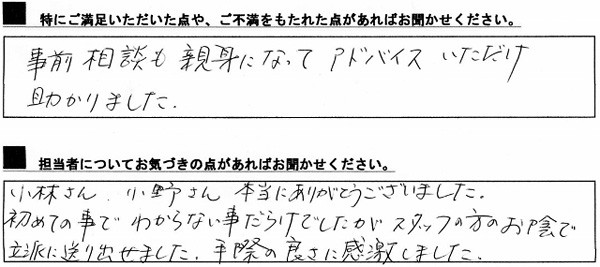 ■ 特にご満足いただいた点や、ご不満をもたれた点があればお聞かせください。
事前相談も親身になってアドバイスいただけ
助かりました.
■ 担当者についてお気づきの点があればお聞かせください。
小林さん、小野さん 本当にありがとうございました.
初めての事で わからない事だらけでしたが スタッフの方のお陰で
立派に送り出せました. 手際の良さに感激しました.